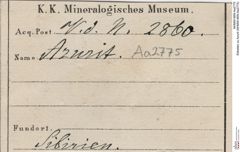 K. K. Mineralogisches Museum.
Acq. Post. V. d. N. 2860.
Name Azurit. Aa2775
Fundort:
Sibirien.